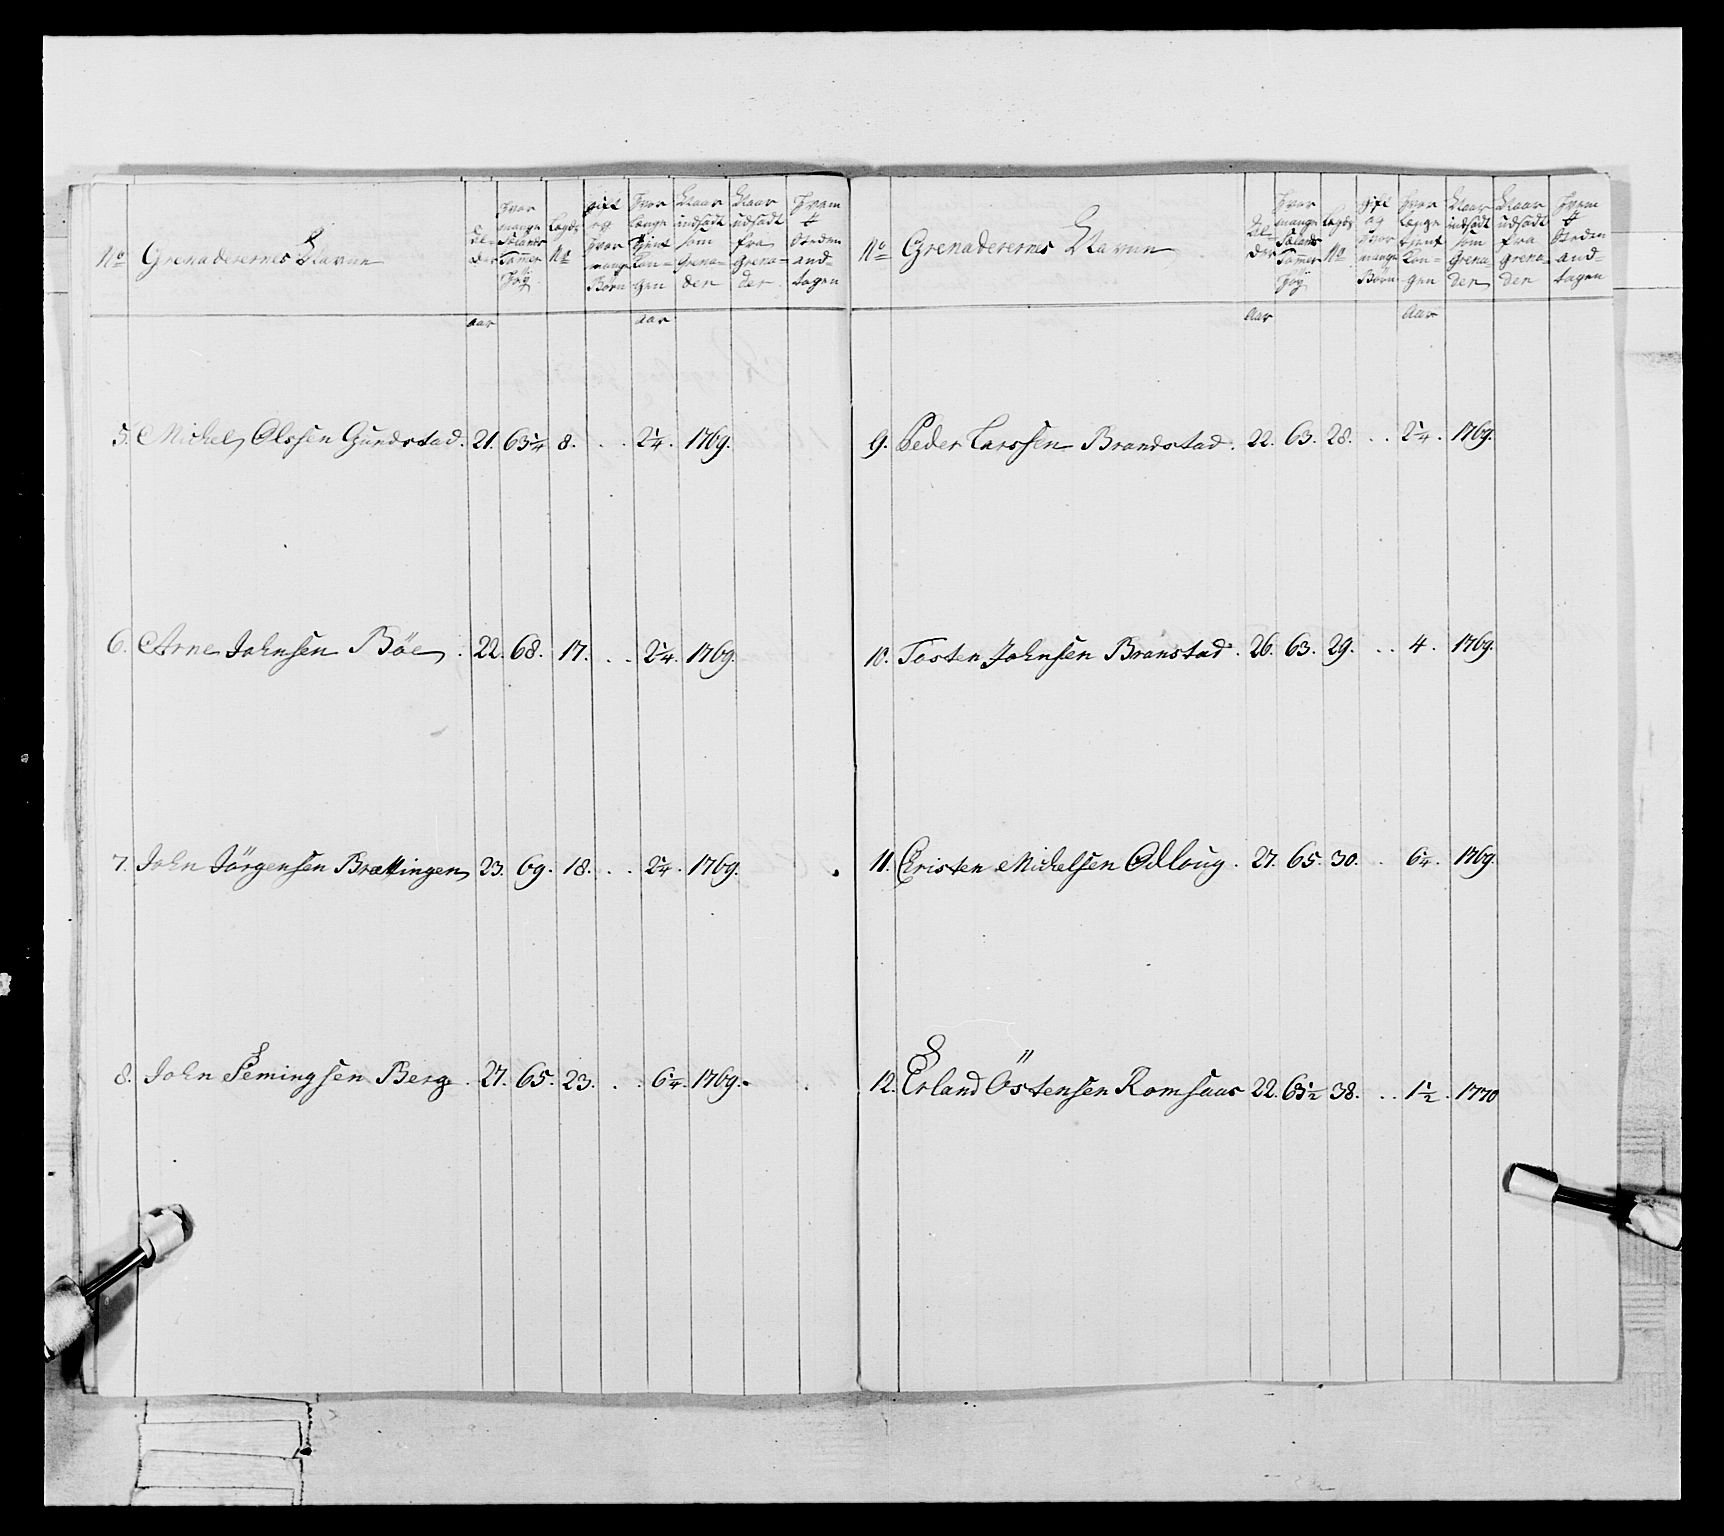 No Grenaderernes Navne
Al-
der
hvor
mange
Siælands
Tommer
høy
Lægds
No
gift
og
hvor
mange
Børn
hvor
længe
tient
Kon-
gen
Naar
indsadt
som
Grena-
der
Naar
udsadt
fra
Grena-
der
hvem
i
Steden
and-
tagen
aar
aar
5. Michel Olssen Gundstad. 21. 63 1/4 8. . . 2 1/4. 1769.
6. Arne Johnsen Böe. 22. 68. 17. . . 2 1/4. 1769.
7. John Jörgensen Brættingen 23. 69. 18. . . 2 1/4. 1769.
8. John Semingsen Berg. 27. 65. 23. . . 6 1/4. 1769.
No Grenaderernes Navne
Al-
der
hvor
mange
Siælands
Tommer
høy
Lægds
No
gift
og
hvor
mange
Børn
hvor
længe
tient
Kon-
gen
Naar
indsadt
som
Grena-
der
Naar
udsadt
fra
Grena-
der
hvem
i
Steden
and-
tagen
Aar
Aar
9. Peder Larssen Brandstad. 22. 63. 28. . . 2 1/4. 1769.
10. Tosten Johnsen Branstad. 26. 63. 29. . . 4. 1769.
11. Christen Michelsen Odloug. 27. 65. 30. . 6 1/4. 1769.
12. Erland Östensen Romsaas 22. 63 1/2 38. . . 1 1/2. 1770